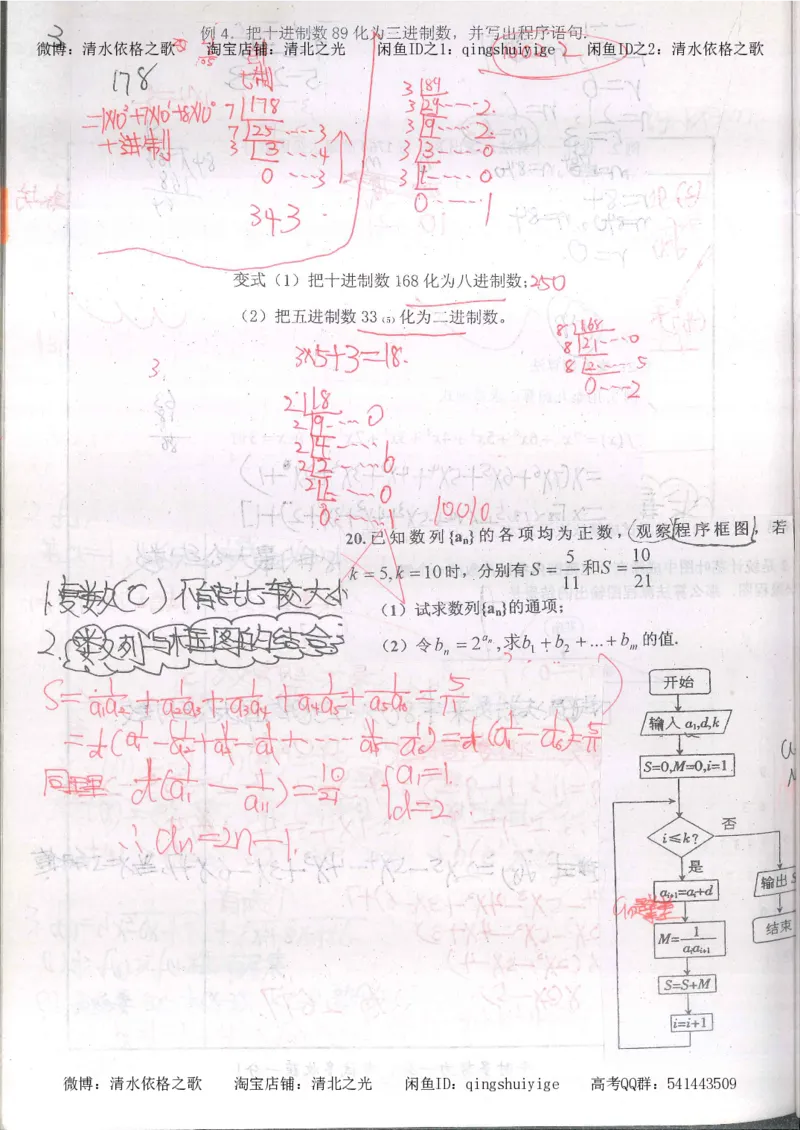 例4．把十进制数89化为三进制数，并写出程序语句.
微博：清水依格之歌 淘宝店铺：清北之光 闲鱼ID之1：qingshuiyige 2 闲鱼ID之2：清水依格之歌
178
=1×10²+7×10¹+8×10⁰
十进制
七制
7 178
7 25 ……3
3 3 ……4
0 ……3
343
3 89
3 29……2
3 9……2
3 3……0
3 1……0
0……1
变式（1）把十进制数168化为八进制数;250
（2）把五进制数33₍₅₎化为二进制数。
8 168
8 21……0
8 2……5
0……2
3×5+3=18.
2 18
2 9……0
2 4……
2 2……0
2 1……0
0……1
10010
20.已知数列{aₙ}的各项均为正数，观察程序框图，若
k=5,k=10时，分别有S=5/11和S=10/21
（1）试求数列{aₙ}的通项;
（2）令bₙ=2^{aₙ},求b₁+b₂+...+bₘ的值.
1.复数(C)不能比较大小
2.数列与框图的结合
S=1/a₁a₂+1/a₂a₃+1/a₃a₄+1/a₄a₅+1/a₅a₆=5/11
=1/d(1/a₁-1/a₂+1/a₂-1/a₃+……1/a₅-1/a₆)=1/d(1/a₁-1/a₆)=5/11
同理 1/d(1/a₁-1/a₁₁)=10/21 {a₁=1. d=2
∴an=2n-1.
开始
输入a₁,d,k
S=0,M=0,i=1
i≤k?
否
是
aᵢ₊₁=aᵢ+d
输出S
M=1/aᵢaᵢ₊₁
结束
S=S+M
i=i+1
微博：清水依格之歌 淘宝店铺：清北之光 闲鱼ID：qingshuiyige 高考QQ群：541443509